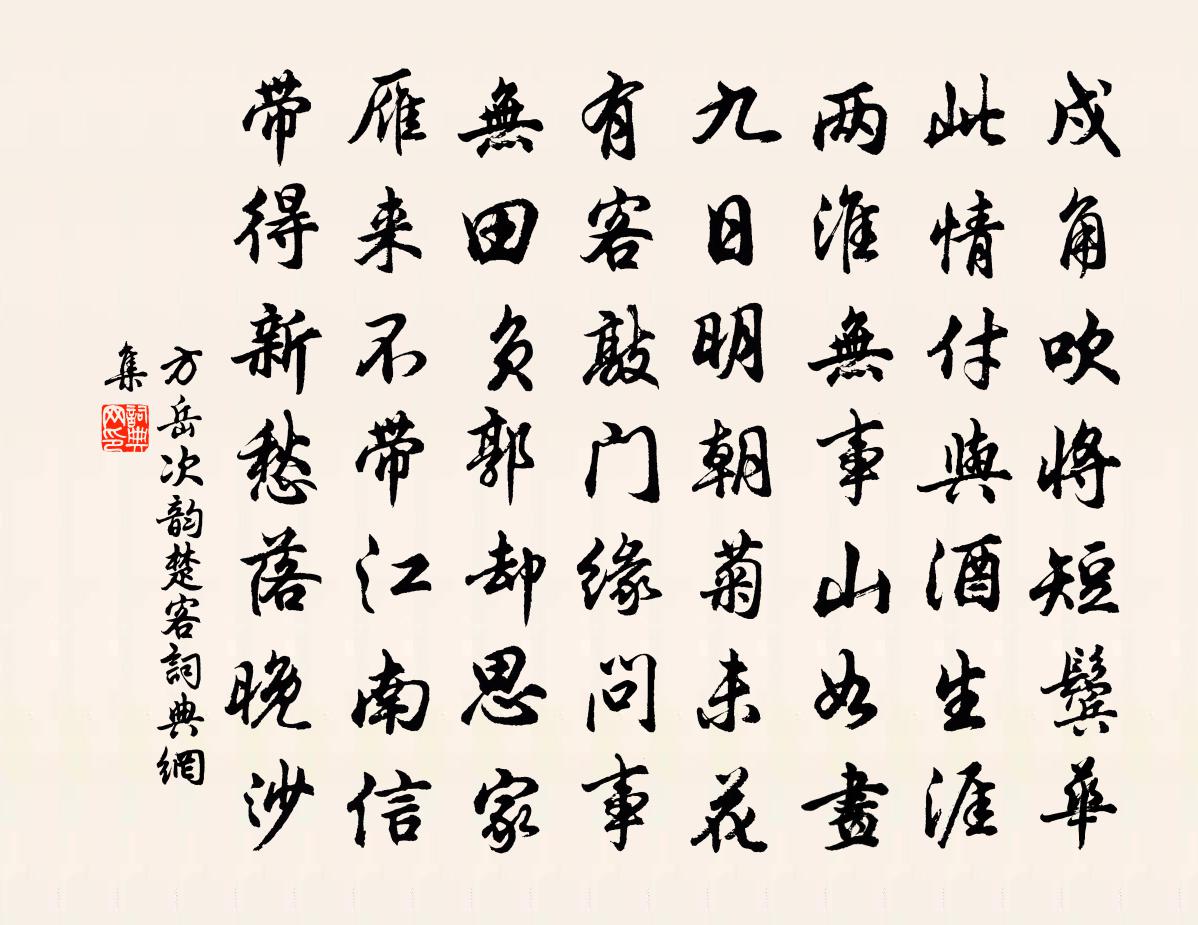 戍角吹将短鬓華
此情付與酒生涯
两淮無事山如畫
九日明朝菊未花
有客敲门缘问事
無田负郭却思家
雁来不带江南信
带得新愁落晚沙
方岳次韵楚客詞典網
集
詞典网印